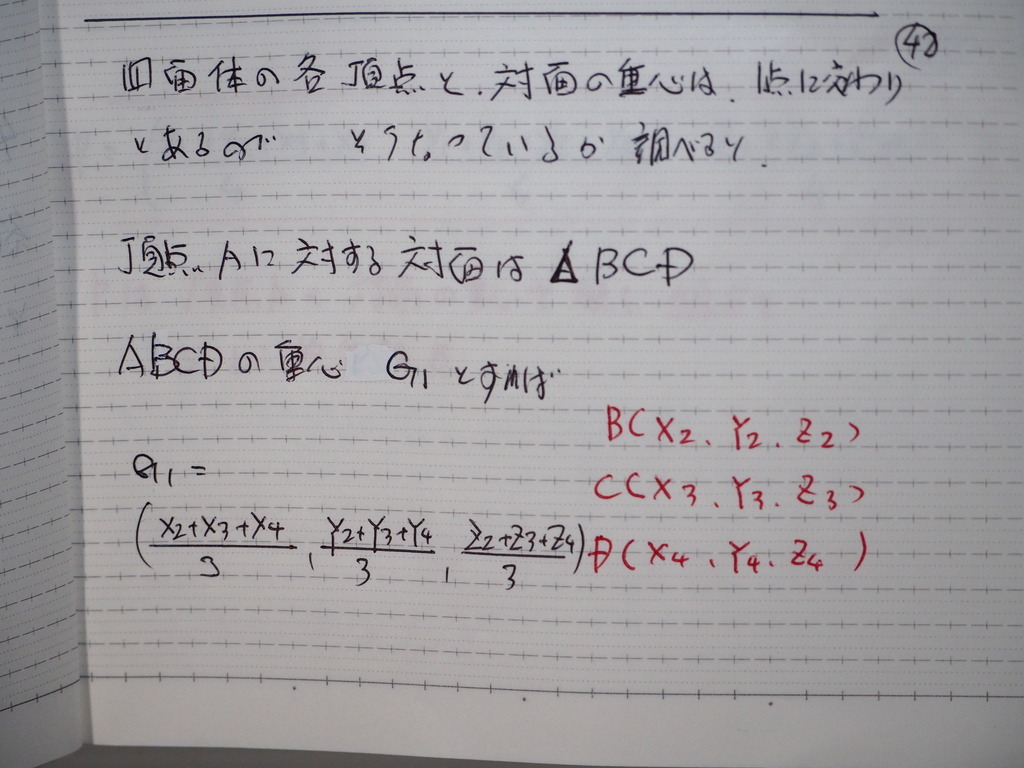 48
四面体の各頂点と、対面の重心は、1点に交わり
とあるのが どうなっているか 調べると、
頂点Aに対する対面は △BCD
△BCDの重心 G1とすれば
B(X2、Y2、Z2)
G1 =
C(X3、Y3、Z3)
(X2+X3+X4/3, Y2+Y3+Y4/3, Z2+Z3+Z4/3) D(X4、Y4、Z4)